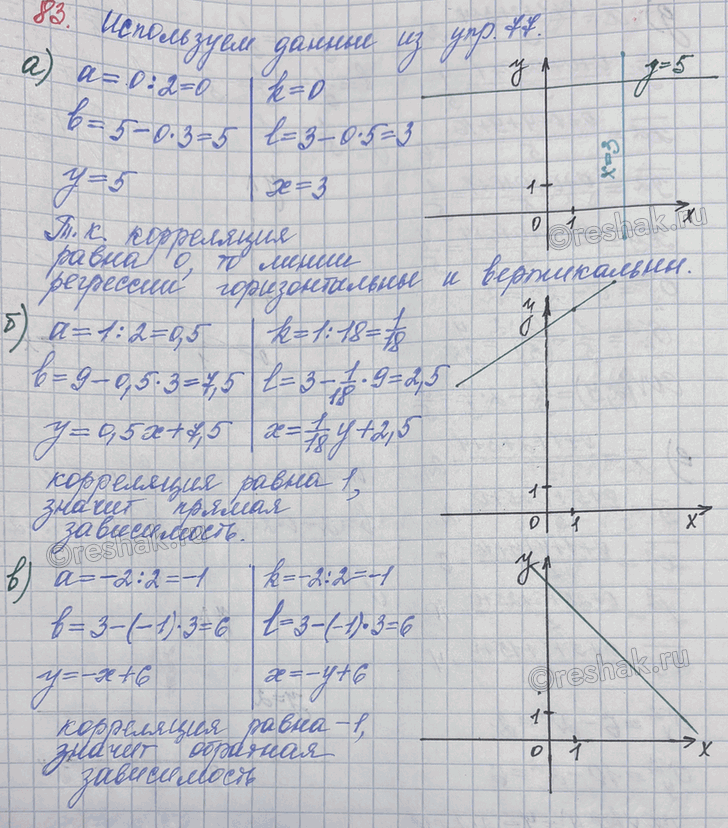 83. Используем данные из упр. 77.
а) a=0:2=0 | k=0
b=5-0·3=5 | l=3-0·5=3
y=5 | x=3
Т.к. корреляция
равна 0, то линии
регрессии горизонтальны и вертикальны.
y
y=5
x=3
1
0 1 x
©reshak.ru
б) a=1:2=0,5 | k=1:18=1/18
b=9-0,5·3=7,5 | l=3-1/18·9=2,5
y=0,5x+7,5 | x=1/18y+2,5
корреляция равна 1,
значит прямая
зависимость.
y
1
0 1 x
©reshak.ru
в) a=-2:2=-1 | k=-2:2=-1
b=3-(-1)·3=6 | l=3-(-1)·3=6
y=-x+6 | x=-y+6
корреляция равна -1,
значит обратная
зависимость
y
1
0 1 x
©reshak.ru